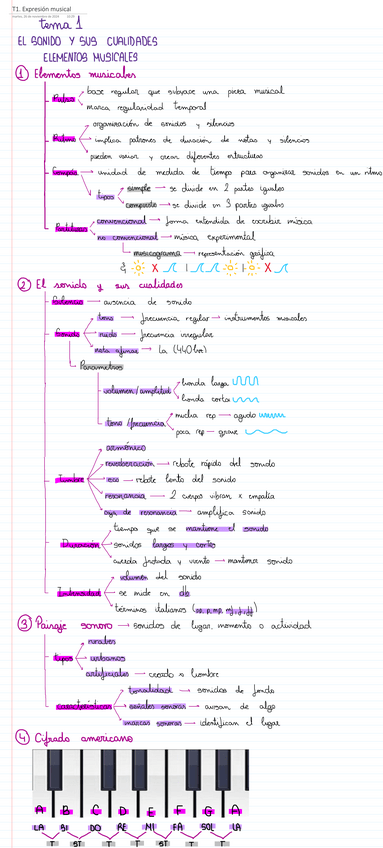 T1. Expresión musical
tema 1
EL SONIDO Y SUS CUALIDADES
ELEMENTOS MUSICALES
① Elementos musicales
Pulso
base regular que subyace una pieza musical
marca regularidad temporal
Ritmo
organización de sonidos y silencios
implica patrones de duración de notas y silencios
pueden variar y crear diferentes estructuras
Compás → unidad de medida de tiempo para organizar sonidos en un ritmo
tipos
simple → se divide en 2 partes iguales
compuesto → se divide en 3 partes iguales
Partitura
convencional → forma extendida de escribir música
no convencional → música experimental
musicograma → representación gráfica
② El sonido y sus cualidades
→ ausencia de sonido
Sonido
tono → frecuencia regular → instrumentos musicales
ruido → frecuencia irregular
nota afinar → La (440hz)
Parámetros
volumen/amplitud
honda larga
honda corta
tono/frecuencia
mucha rep → agudo
poca rep → grave
Timbre
armónico
reverberación → rebote rápido del sonido
eco → rebote lento del sonido
resonancia → 2 cuerpos vibran x empatía
caja de resonancia → amplifica sonido
Duración
tiempo que se mantiene el sonido
sonidos largos y cortos
cuerda frotada y viento → mantener sonido
Intensidad
volumen del sonido
se mide en db
términos italianos (pp, p, mp, mf, f, ff)
③ Paisaje sonoro → sonidos de lugar, momento o actividad
tipos
rurales
urbanos
artificiales → creado x hombre
características
tonalidad → sonidos de fondo
señales sonoras → avisan de algo
marcas sonoras → identifican el lugar
④ Cifrado americano
A B C D E F G A
LA SI DO RE MI FA SOL LA
T ST T T ST T T